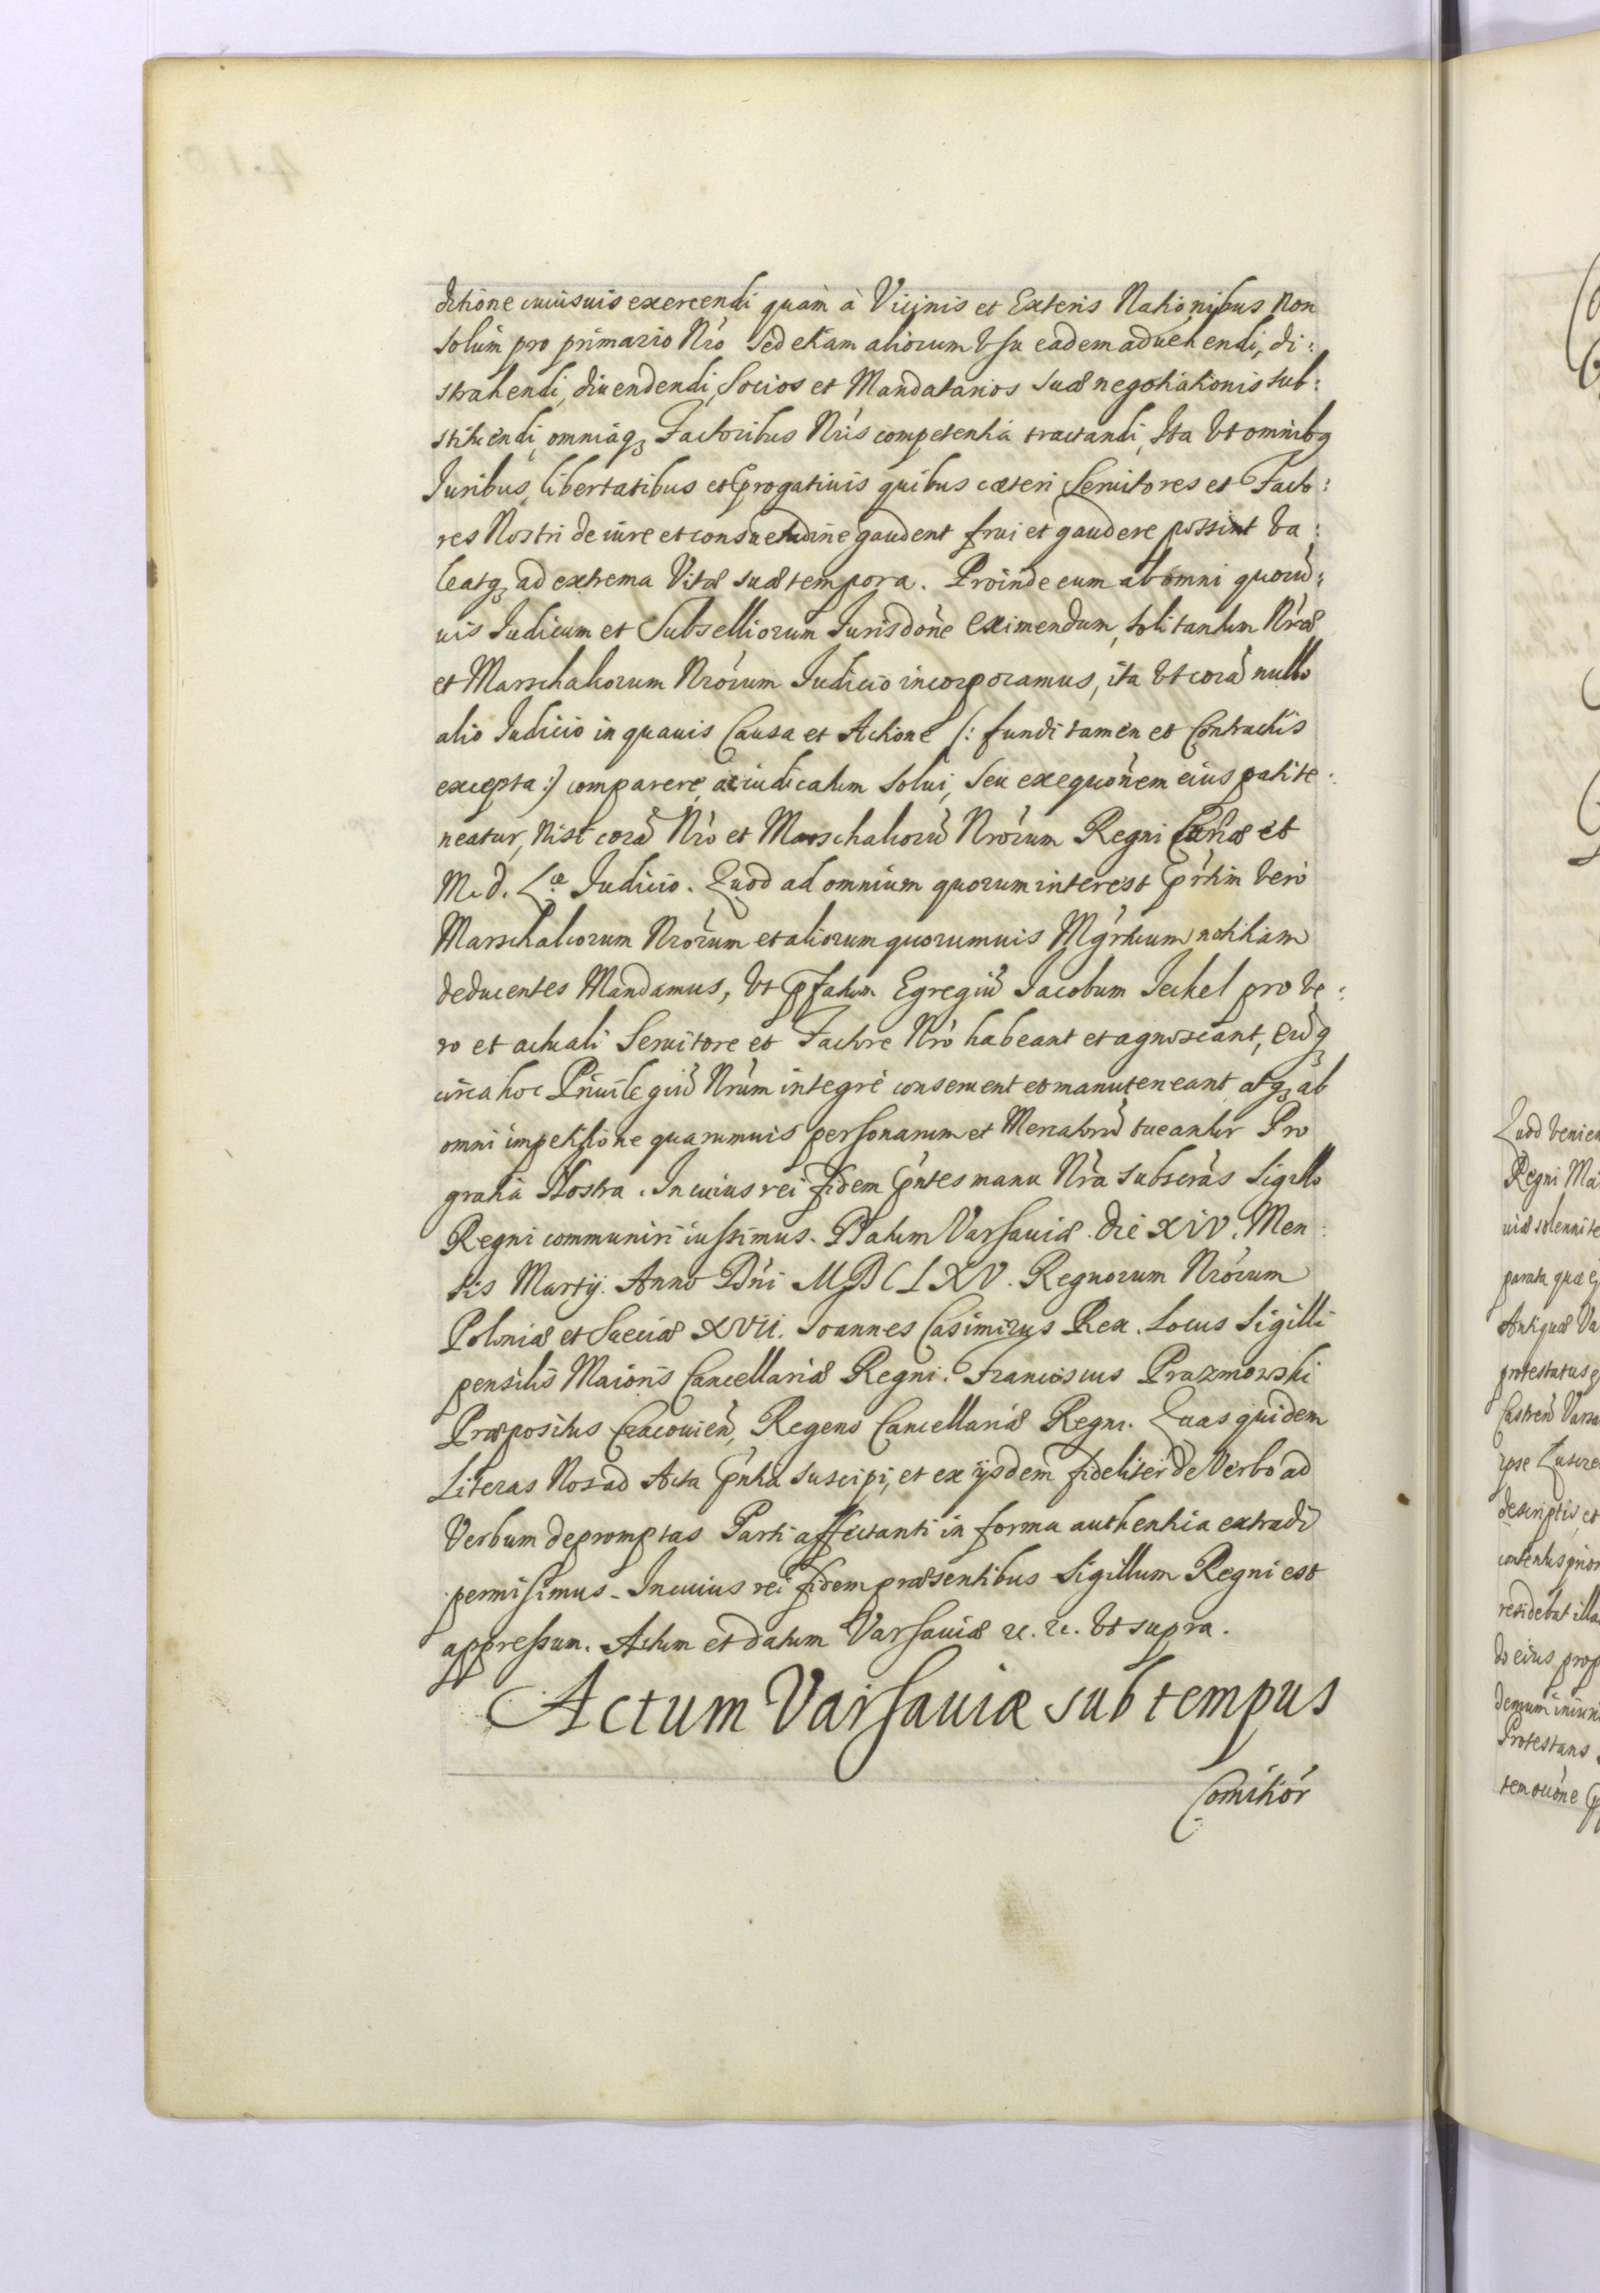 ditione cuiusuis exercendi quam à Vicinis et Exteris Nationibus Non
solum pro primario Nrõ sed etiam aliorum Vsu eadem aduehendi, di:
strahendi, diuendendi, Socios et Mandatarios suæ negotiationis sub:
stituendi, omniaq; Factoribus Nrĩs competentia tractandi, Ita Vt omnibq
Juribus, libertatibus et Progatiuis quibus cæteri Seruitores et Facto:
res Nostri de iure et consuetudine gaudent frui et gaudere possint Va:
leatq; ad extrema Vitæ suæ tempora. Proinde eum ab omni quorũ:
uis Judicum et Subselliorum Jurisdõne eximendum, soli tantum Nrãæ
et Marschalcorum Nrõrum Judicio incorporamus, ita Vt corã nullo
alio Judicio in quauis Causa et Actione (: fundi tamen et Contractûs
excepta :) comparere, ac iudicatum solui, seu exequõnem eius pati te:
neatur, Nisi corã Nrõ et Marschalcorũ Nrõrum Regni et
M. d. L.æ Judicio. Quod ad omnium quorum interest Prtim Verò
Marschalcorum Nrõrum et aliorum quorumuis Mgrtuum notitiam
deducentes Mandamus, Vt Pfatum Egregiũ Jacobum Jeckel pro Ve:
ro et actuali Seruitore et Factore Nrõ habeant et agnoscant, eũq;
circa hoc Priuilegiũ Nrũm integrè conseruent et manuteneant atq; ab
omni impetitione quarumuis personarum et Mercatorũ tueantur Pro
gratia Nostra. In cuius rei fidem Pntes manu Nrã subscrãs Sigillo
Regni communiri iussimus. Datum Varsauiæ. die XIV. Men:
sis Martij. Anno Dnĩ MDCLXV. Regnorum Nrõrum
Poloniæ et Sueciæ XVII. Joannes Casimirus Rex. Locus Sigilli
pensilis Maioris Cancellariæ Regni. Franciscus Prazmowski
Præpositus Cracouieñ, Regens Cancellariæ Regni. Quas quidem
Literas Nos ad Acta Pntia suscipi, et ex ijsdem fideliter de Verbo ad
Verbum depromptas Parti affectanti in forma authentica extradi
permisimus. In cuius rei fidem præsentibus Sigillum Regni est
appressum. Actum et datum Varsauiæ &c. &c. Vt supra.
Actum Varsauiæ sub tempus
Comitior
Quod
Regni
parata quæ
Antiquæ
protestatus
ipse
Protestans